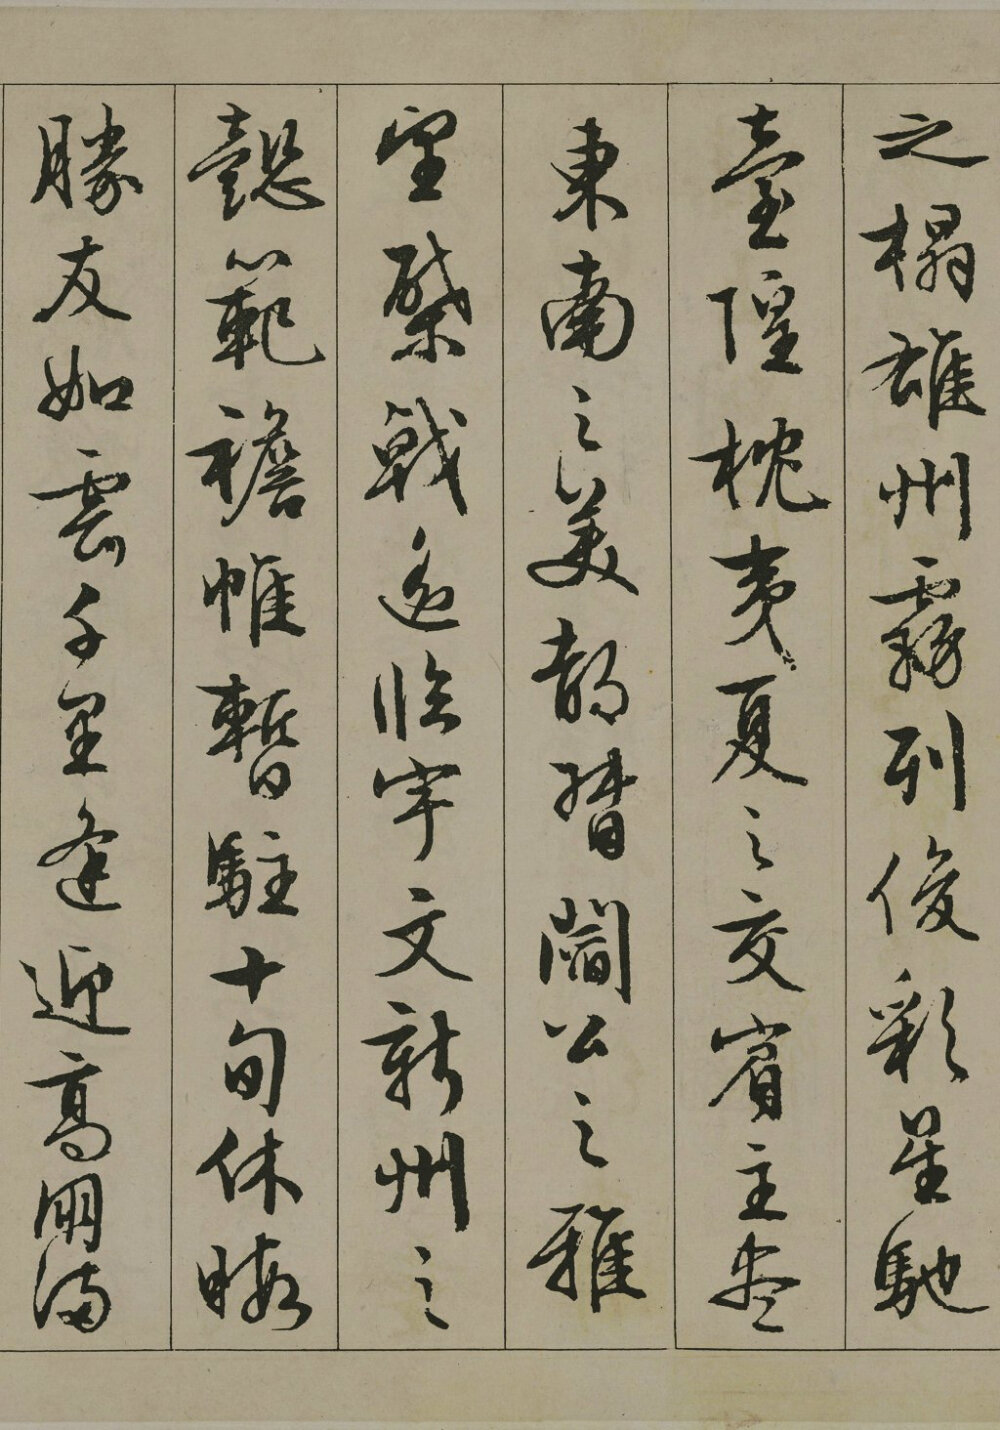 之榻雄州霧列俊彩星馳
臺隍枕夷夏之交賓主盡
東南之美都督閻公之雅
望棨戟遙臨宇文新州之
懿範襜帷暫駐十旬休暇
勝友如雲千里逢迎高朋滿